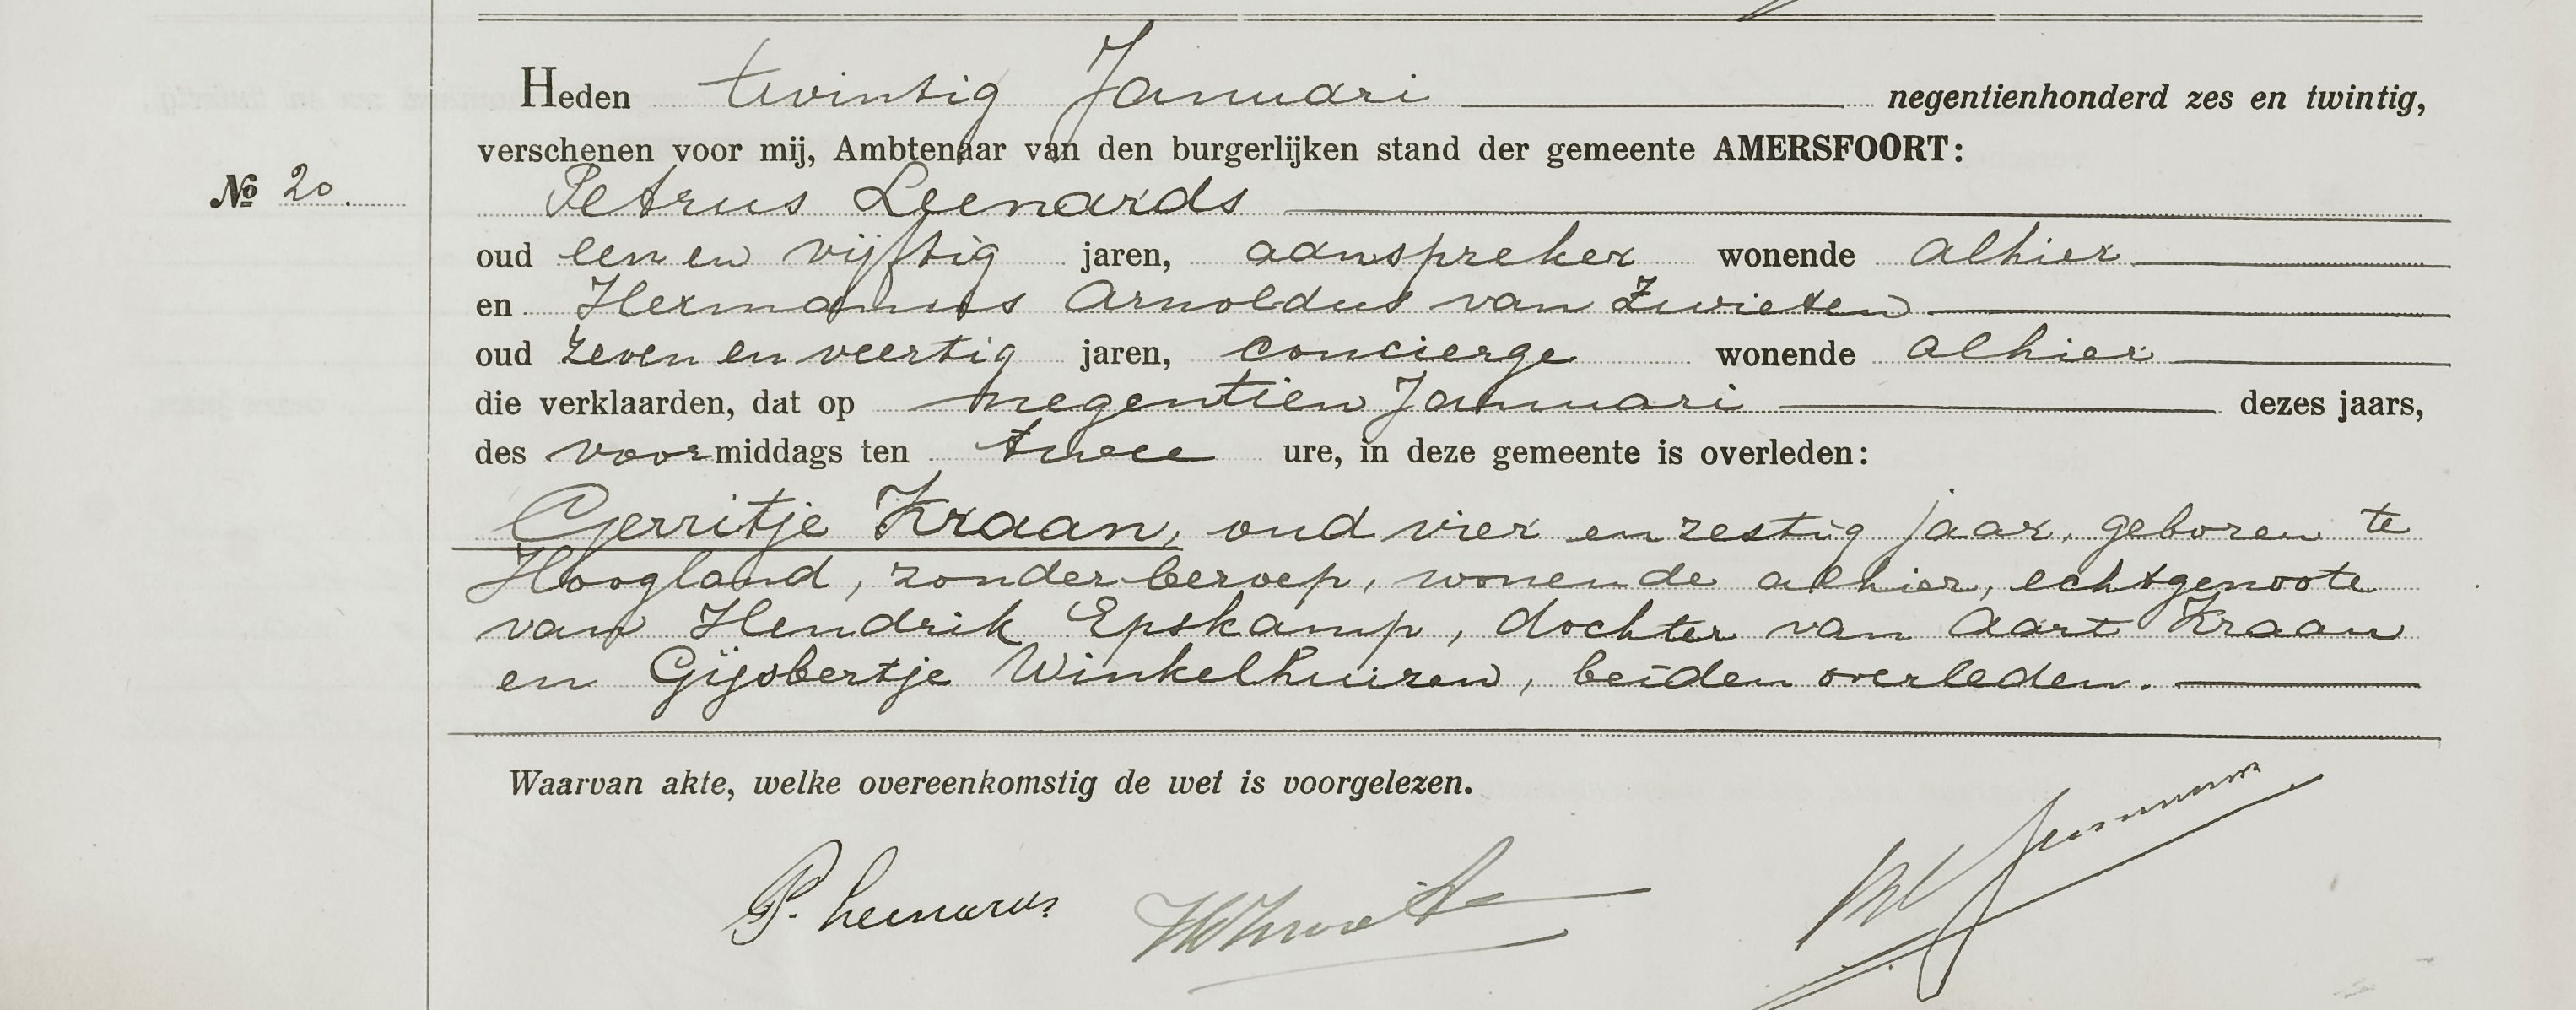 Heden twintig Januari negentienhonderd zes en twintig,
verschenen voor mij, Ambtenaar van den burgerlijken stand der gemeente AMERSFOORT:
№ 20.
Petrus Leenards
oud een en vijftig jaren, aanspreker wonende alhier
en Hermanus Arnoldus van Zwieten
oud zeven en veertig jaren, concierge wonende alhier
die verklaarden, dat op negentien Januari dezes jaars,
des voormiddags ten twee ure, in deze gemeente is overleden:
Gerritje Kraan, oud vier en zestig jaar, geboren te
Hoogland, zonder beroep, wonende alhier, echtgenoote
van Hendrik Epskamp, dochter van Aart Kraan
en Gijsbertje Winkelhuizen, beiden overleden.
Waarvan akte, welke overeenkomstig de wet is voorgelezen.
P. Leenards